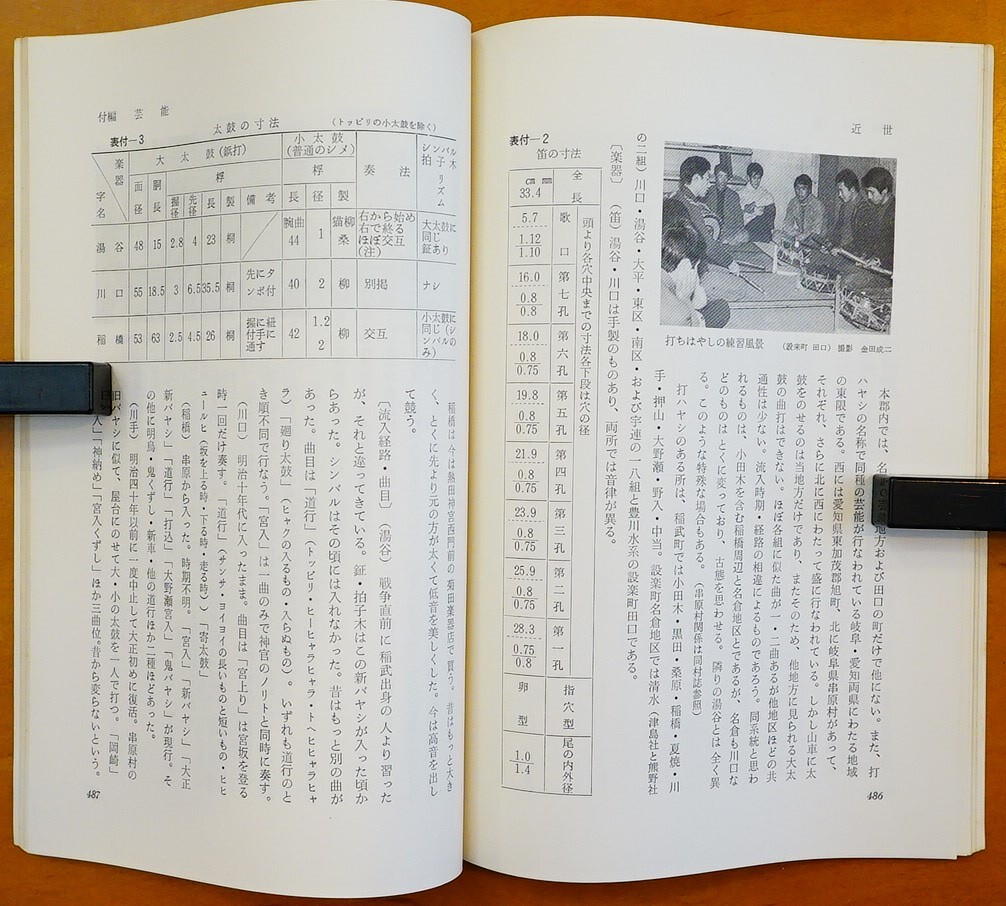 近世
打ちはやしの練習風景 (設楽町 田口) 撮影 金田成二
本郡内では、名
地方および田口の町だけで他にない。また、打
ハヤシの名称で同種の芸能が行なわれている岐阜・愛知両県にわたる地域
の東限である。西には愛知県東加茂郡旭町、北に岐阜県串原村があって、
それぞれ、さらに北に西にわたって盛に行なわれている。しかし山車に太
鼓をのせるのは当地方だけであり、またそのため、他地方に見られる大太
鼓の曲打はできない。ほぼ各組に似た曲が一・二曲あるが他地区ほどの共
通性は少ない。流入時期・経路の相違によるものであろう。同系統と思わ
れるものは、小田木を含む稲橋周辺と名倉地区とであるが、名倉も川口な
どのものはとくに変っており、古態を思わせる。隣りの湯谷とは全く異
る。このような特殊な場合もある。(串原村関係は同村誌参照)
打ハヤシのある所は、稲武町では小田木・黒田・桑原・稲橋・夏焼・川
手・押山・大野瀬・野入・中当。設楽町名倉地区では清水(津島社と熊野社
の二組)川口・湯谷・大平・東区・南区・および宇連の一八組と豊川水系の設楽町田口である。
〔楽器〕(笛)湯谷・川口は手製のものあり、両所では音律が異る。
表付—2
笛の寸法
全長 33.4
頭より各穴中央までの寸法各下段は穴の径
歌口 5.7 1.12 1.10
第七孔 16.0 0.8 0.8
第六孔 18.0 0.8 0.75
第五孔 19.8 0.8 0.8
第四孔 21.9 0.8 0.75
第三孔 23.9 0.8 0.75
第二孔 25.9 0.8 0.75
第一孔 28.3 0.75 0.8
指穴型 卵型
尾の内外径 1.0 1.4
486
付編 芸能
太鼓の寸法 (トッピリの小太鼓を除く)
表付—3
楽器 字名 大太鼓(鋲打) 小太鼓(普通のシメ) 奏法 シンバル拍子木リズム
面径 胴長 桴 握径 先径 長 製 備考 桴 長 径 製
湯谷 48 15 2.8 4 23 桐 腕曲44 1 猫柳桑 右から始め右で終るほぼ交互(注) 大太鼓に同じ鉦あり
川口 55 18.5 3 6.5 35.5 桐 先にタンポ付 40 2 柳 別掲 ナレ
稲橋 53 63 2.5 4.5 26 桐 握に紐付手に通す 42 1.2 2 柳 交互 小太鼓に同じ(シンバルのみ)
稲橋は、今は熱田神宮西門前の菊田楽器店で買う。昔はもっと大き
く、とくに先より元の方が太くて低音を美しくした。今は高音を出し
て競う。
〔流入経路・曲目〕(湯谷) 戦争直前に稲武出身の人より習った
が、それと違ってきている。鉦・拍子木はこの新バヤシが入った頃か
らあった。シンバルはその頃には入れなかった。昔はもっと別の曲が
あった。曲目は「道行」(トッピリ・ヒーヒャラヒャラ・トヘヒャラヒャ
ラ)「廻り太鼓」(ヒャクの入るもの・入らぬもの)。いずれも道行のと
き順不同で行なう。「宮入」は一曲のみで神官のノリトと同時に奏す。
(川口) 明治十年代に入ったまま。曲目は「宮上り」は宮坂を登る
時一回だけ奏す。「道行」(サンサ・ヨイヨイの長いものと短いもの・ヒヒ
ュールヒ(坂を上る時・下る時・走る時))「寄太鼓」
(稲橋) 串原から入った。時期不明。「宮入」「新バヤシ」「大正
新バヤシ」「道行」「打込」「大野瀬宮入」「鬼バヤシ」が現行。そ
の他に明烏・鬼くずし・新車・他の道行ほか二種ほどあった。
(川手) 明治四十年以前に一度中止して大正初めに復活。串原村の
旧バヤシに似て、屋台にのせて大・小の太鼓を一人で打つ。「岡崎」
入」「神納め」「宮入くずし」ほか三曲位。昔から変らないという。
487